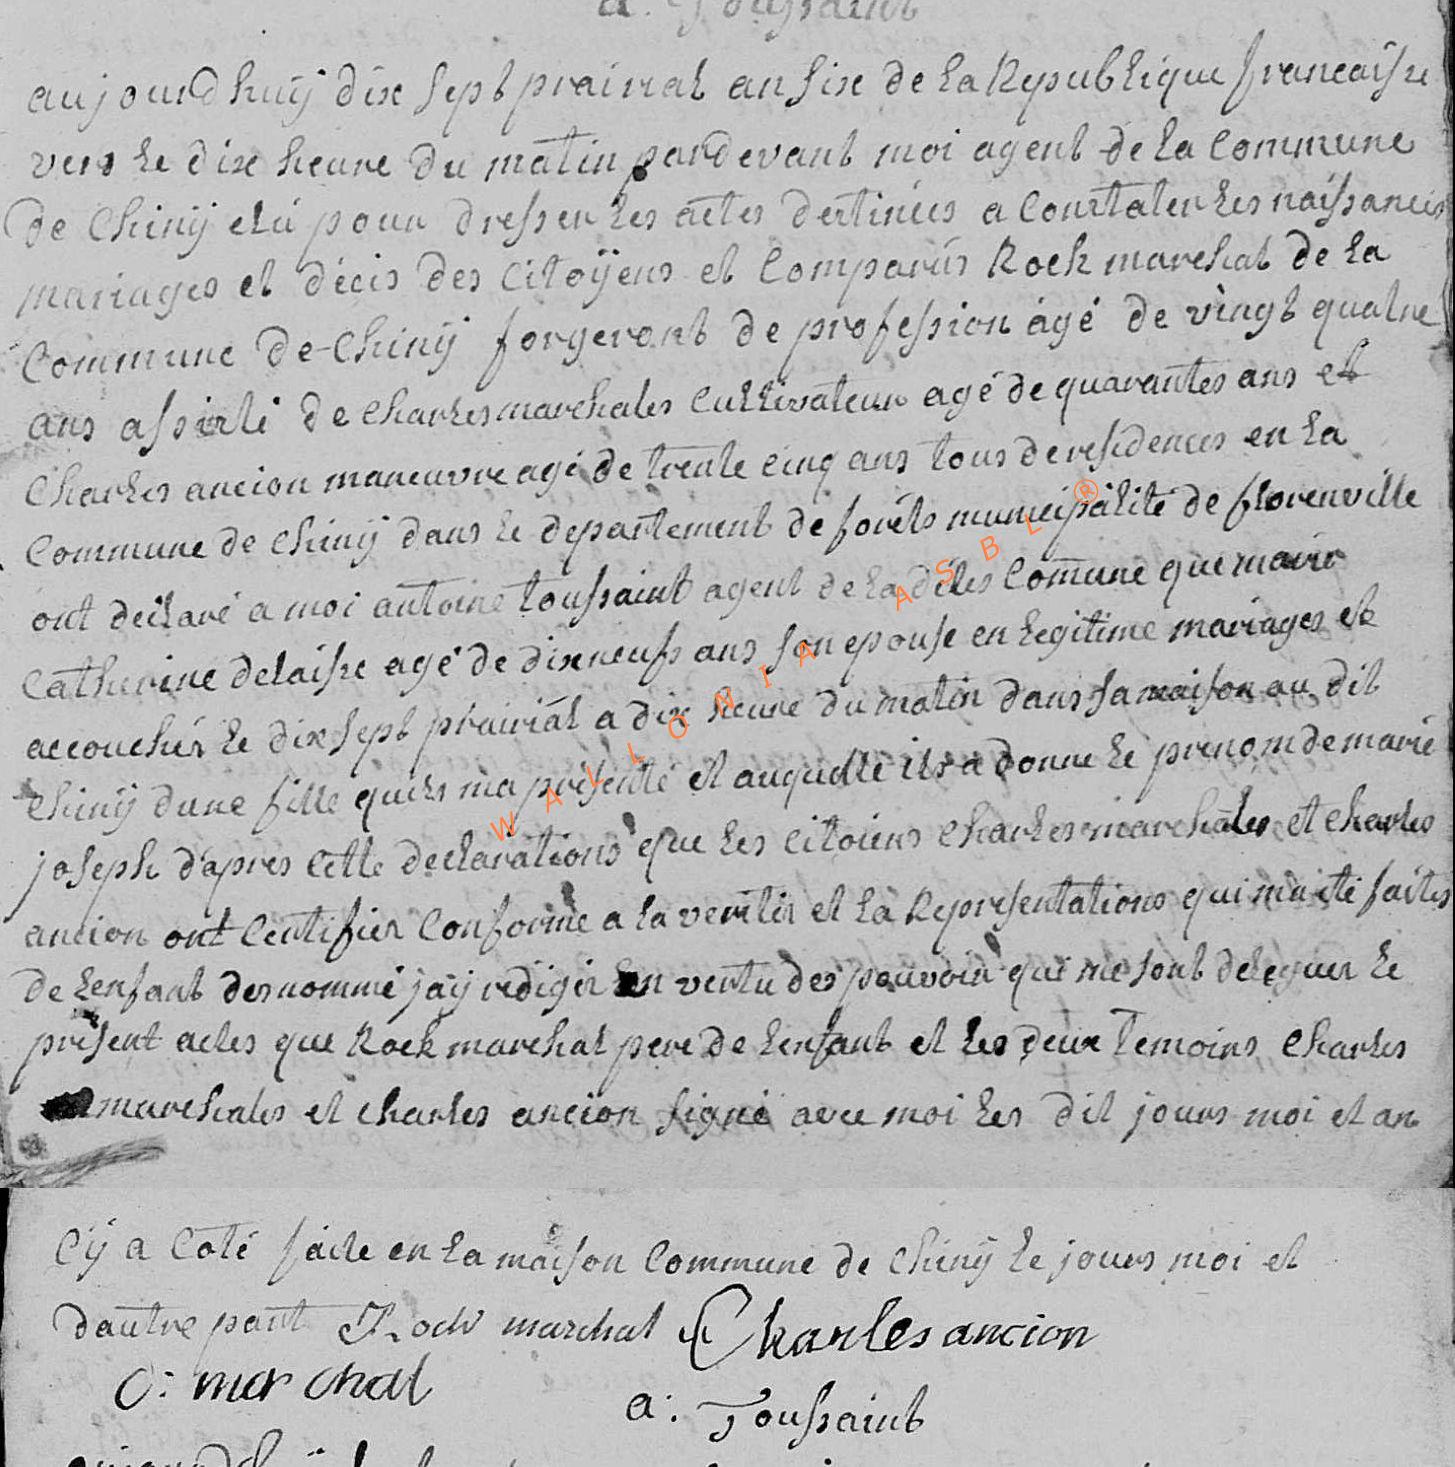 a. Toussaint
aujourdhuÿ dix sept prairial an six de la Republique francaisse
vers le dix heure du matin pardevant moi agent de la Commune
de Chinÿ elu pour dresser les actes destinées a Constater les naissances
mariages et décis des Citoÿens et Comparus Rock marchal de la
Commune de Chinÿ forgeront de profession agé de vingt quatre
ans assisté de Charles marchales Cultivateur agé de quarantes ans et
Charles ancion maneuvre agé de trente cinq ans tous de residences en la
Commune de Chinÿ dans le departement de forêts municipalité de florenville
ont déclaré a moi antoine toussaint agent de la dites Comune que marie
Catherine delaisse agé de dixneufs ans son epouse en legitime mariages est
accouchér le dix sept prairial a dix heure du matin dans sa maison au dit
Chinÿ dune fille quils ma présenté et auquelle ils a donne le prenom de marie
joseph daprès Cette declarations que les Citoiens Charles marchales et Charles
ancion ont Certifier Conforme a la veritér et la Representations qui ma été faites
de lenfant denommé jaÿ rédigér en vertu des pouvoir qui me sont deleguer le
présent actes que Rock marchal pere de lenfant et les deux Temoins Charles
marchales et Charles ancion signé avec moi les dit jours moi et an
Cÿ a Coté faite en la maison Commune de Chinÿ le jours moi et
dautre part Roch marchal Charles ancion
C: marchal
a: Toussaint
WALLONIA ASBL ®